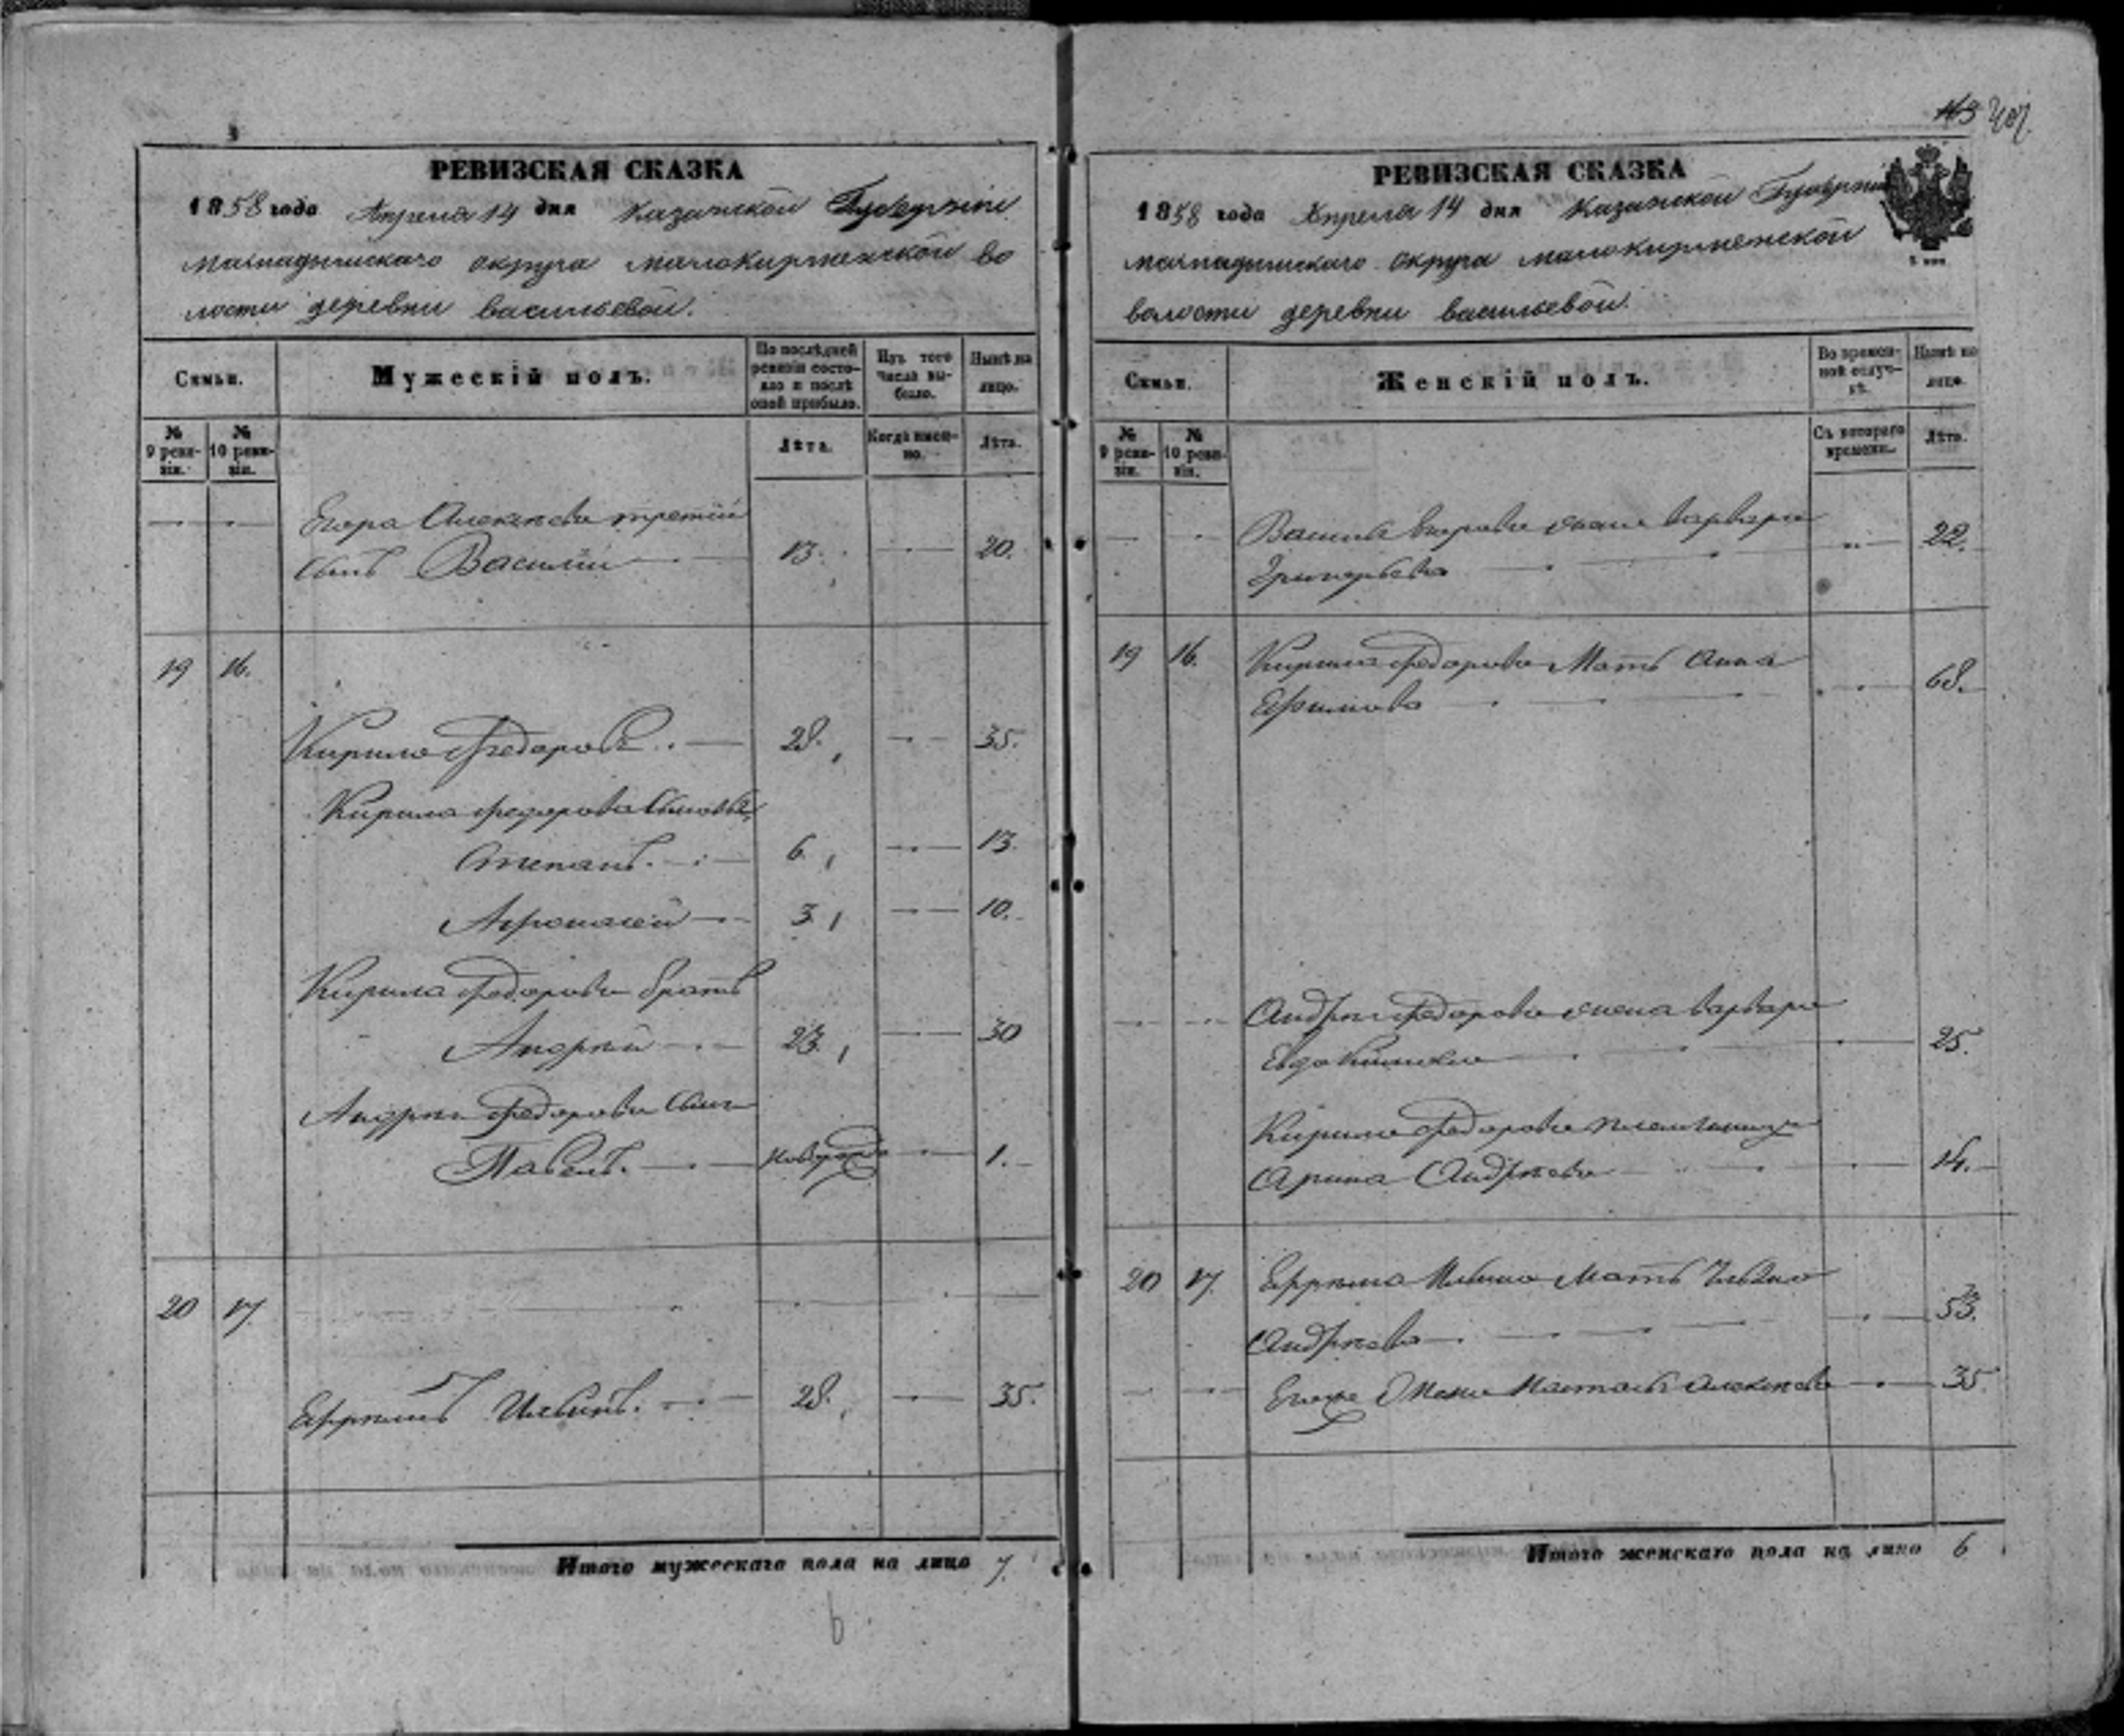 РЕВИЗСКАЯ СКАЗКА
1858 года Апреля 14 дня Казанской Губерніи
мамадышскаго округа малокирменской во
лости деревни васильевой.
Семьи.
Мужескій полъ.
По послѣдней ревизіи состояло и послѣ оной прибыло.
Изъ того числа выбыло.
Нынѣ на лицо.
№ 9 ревизіи.
№ 10 ревизіи.
Лѣта.
Когда именно.
Лѣта.
Егора Алексеева третій
сынъ Василій 13. 20.
19 16.
Кирило Федоровъ 28. 35.
Кирила федорова сыновья
Степанъ. 6. 13.
Афонасей 3 10.
Кирила Федорова братъ
Андрей 23. 30
Андрея Федорова сынъ
Павелъ. новорожд 1.
20 17
Ефремъ Ильинъ. 28. 35.
Итого мужескаго пола на лицо 7.
6
407.
РЕВИЗСКАЯ СКАЗКА
1858 года Апреля 14 дня Казанской Губерніи
мамадышскаго округа малокирменской
волости деревни васильевой.
Семьи.
Женскій полъ.
Во временной отлучкѣ.
Нынѣ на лицо.
№ 9 ревизіи.
№ 10 ревизіи.
Съ котораго времени.
Лѣта.
Василья Егорова жена Варвара
Григорьева 22.
19 16. Кирила Федорова Мать Анна
Ефимова 68.
Андрея Федорова жена Варвара
Евдокимова 25.
Кирила Федорова племянница
Арина Андреева 14.
20 17. Ефрема Ильина Мать
Андреева 53.
Жена Настасья Алексеева 35
Итого женскаго пола на лицо 6